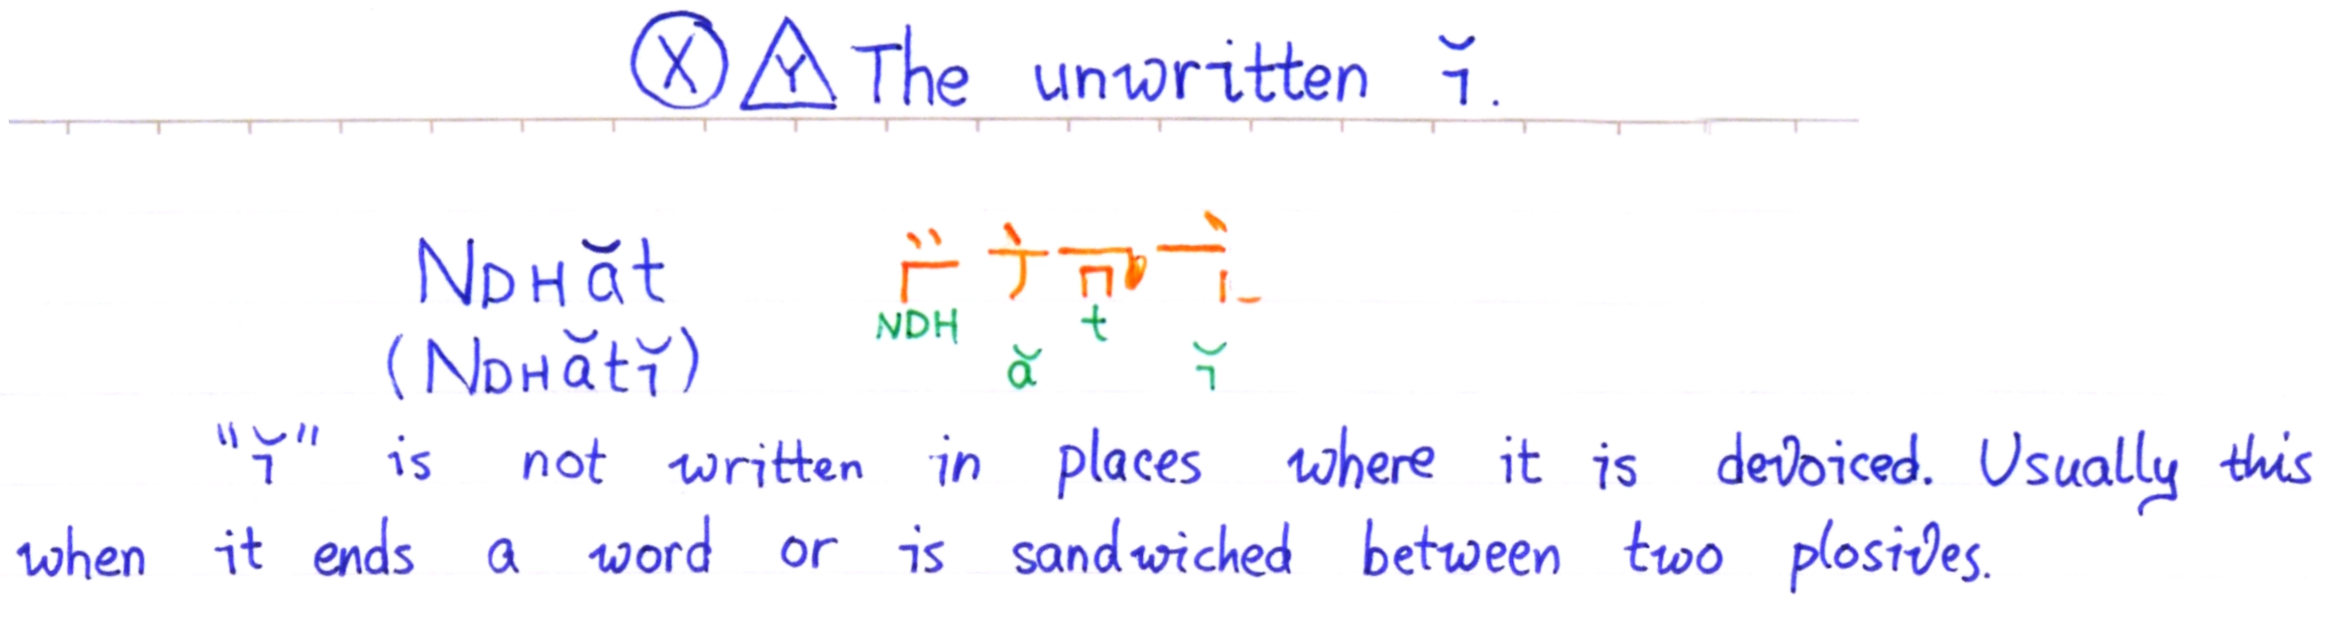 X Y The unwritten ĭ.
NDHăt
(NDHătĭ)
NDH ă t ĭ
"ĭ" is not written in places where it is devoiced. Usually this
when it ends a word or is sandwiched between two plosives.